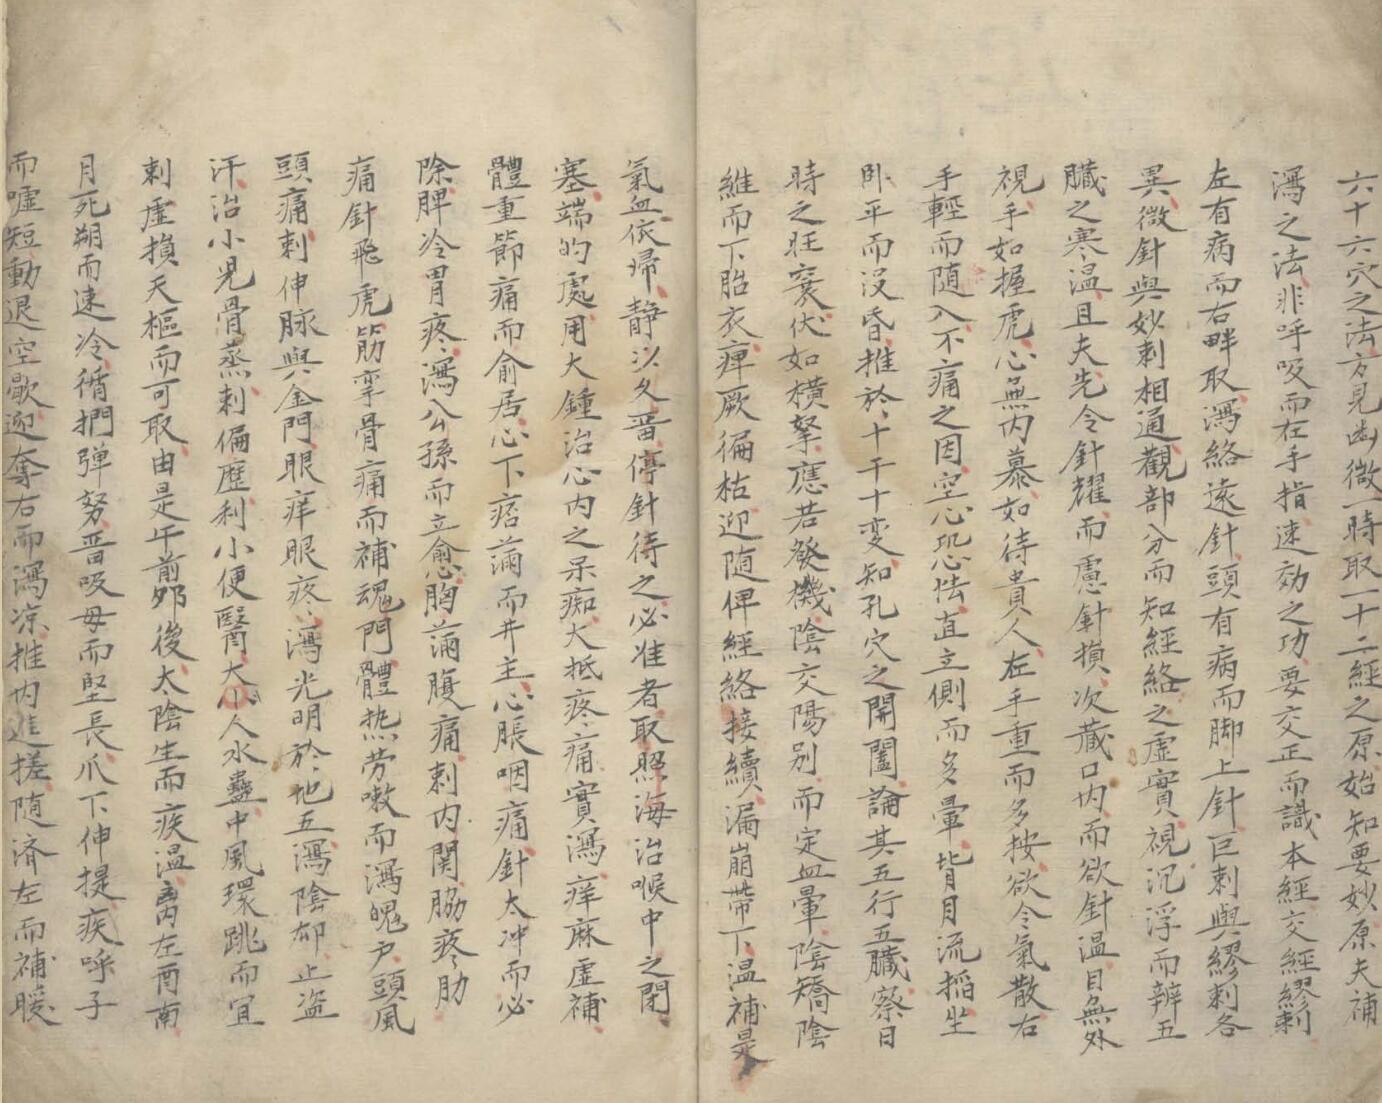 六十六穴之法方見幽微一時取一十二經之原始知要妙原夫補
瀉之法非呼吸而在手指速効之功要交正而識本經交經繆剌
左有病而右畔取瀉絡遠針頭有病而脚上針巨刺與繆刺各
異微針與妙刺相通觀部分而知經絡之虛實視沉浮而辨五
臟之寒温且夫先令針耀而慮針損次藏口内而欲針温目無外
視手如握虎心無內慕如待貴人左手重而多按欲令氣散右
手輕而随入不痛之因空心恐怯直立側而多暈背目流搯坐
卧平而没昏推於十干十变知孔穴之開闔論其五行五臓察日
時之旺衰伏如橫拏應若發機陰交陽别而定血暈陰矯陰
維而下胎衣痺厥徧枯迎随俾經絡接續漏崩帶下温補是
氣血依歸静以久畱停針待之必准者取照海治喉中之閉
塞端的處用大鍾治心内之呆痴大抵疼痛實瀉痒麻虛補
體重節痛而俞居心下痞滿而井主心脹咽痛針太冲而必
除脾冷胃疼瀉公孫而立愈胸滿腹痛刺内関脇疼肋
痛針飛虎筋攣骨痛而補魂門體热劳嗽而瀉魄户頭風
頭痛刺伸脉與金門眼痒眼疼瀉光明於地五瀉陰郄止盗
汗治小児骨蒸刺偏歷利小便醫大小人水蠱中風環跳而宜
刺虛損天樞而可取由是午前夘後太陰生而疾温离左酉南
月死朔而速冷循捫弹努畱吸母而堅長爪下伸提疾呼子
而嘘短動退空歇迎奪右而瀉凉推内進搓随济左而補暖